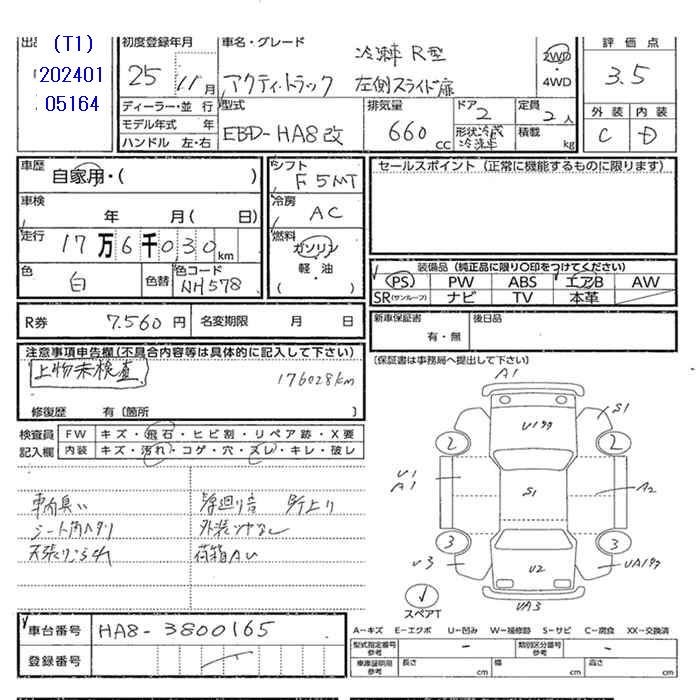 出品 (T1) 初度登録年月 車名・グレード 冷凍車 R型 2WD ・ 4WD 評価点
202401 25 11月 アクティトラック 左側スライド扉 3.5
05164
ディーラー・並行 型式 排気量 ドア 2 定員 2人 外装 内装
モデル年式 年 EBD-HA8改 660 cc 形状 冷蔵冷凍車 積載 kg C D
ハンドル 左・右
車歴 自家用・( ) シフト F5MT セールスポイント (正常に機能するものに限ります)
車検 年 月( 日) 冷房 AC
走行 17万6千030km 燃料 ガソリン・軽油( )
装備品 (純正品に限り○印をつけてください)
色 白 色替 色コード NH578 PS PW ABS エアB AW
SR(サンルーフ) ナビ TV 本革
R券 7.560円 名変期限 月 日 新車保証書 有・無 後日品
注意事項申告欄(不具合内容等は具体的に記入して下さい) (保証書は事務局へ提出して下さい)
上物未検査 176028km
修復歴 有〔箇所 〕
検査員 FW キズ・飛石・ヒビ割・リペア跡・X要
記入欄 内装 キズ・汚れ・コゲ・穴・スレ・キレ・破レ
A1
U1ｷｸ S1
2 2
U1 A1 S1 A2
3 3
U3 U2 UA1ｷｸ
スペアT VA3
車内臭い
シート角ヘタリ 外装ツヤなし
荷箱AU
A−キズ E−エクボ U−凹み W−補修跡 S−サビ C−腐食 XX−交換済
車台番号 HA8-3800165 型式指定番号 参考 - 類別区分番号 参考 -
登録番号 車庫証明用 参考 長さ cm 幅 cm 高さ cm